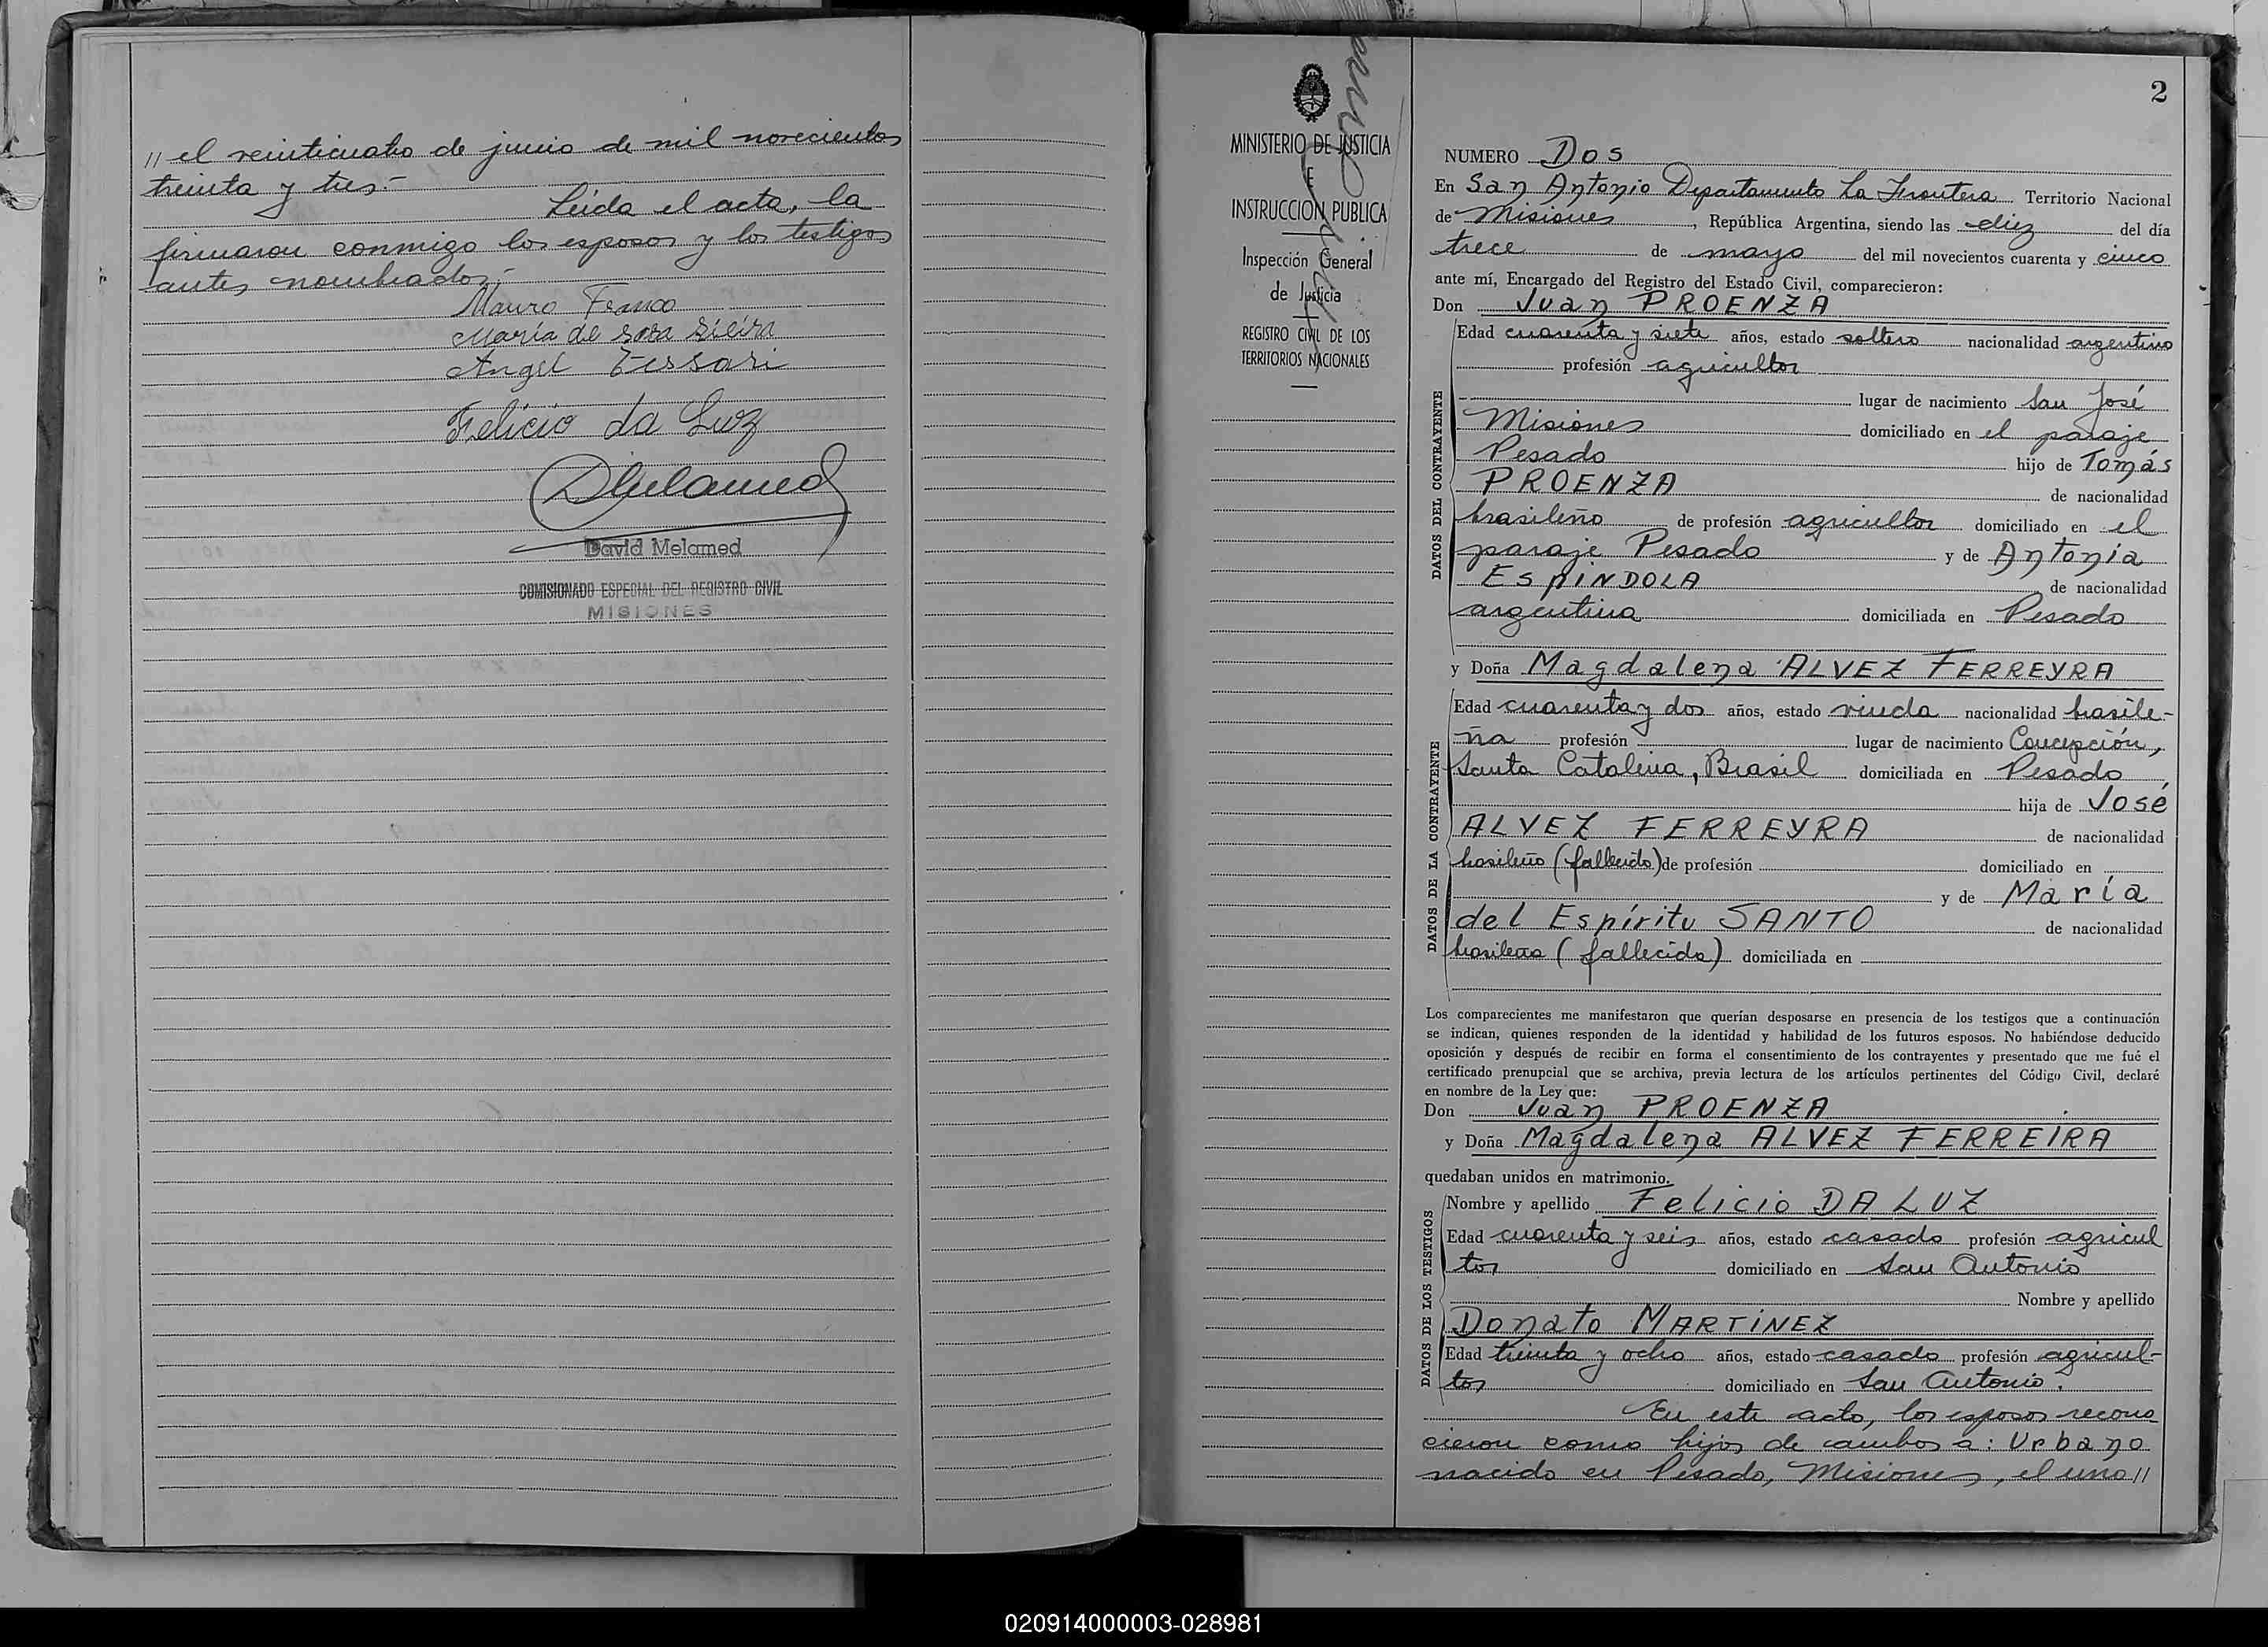 // el veinticuatro de junio de mil novecientos
treinta y tres.-
Leída el acta, la
firmaron conmigo los esposos y los testigos
antes nombrados.-
Mauro Franco
María de
Angel Tessari
Felicio da Luz
DMelamed
David Melamed
COMISIONADO ESPECIAL DEL REGISTRO CIVIL
MISIONES
MINISTERIO DE JUSTICIA
E
INSTRUCCION PUBLICA
Inspección General
de Justicia
REGISTRO CIVIL DE LOS
TERRITORIOS NACIONALES
2
NUMERO Dos
En San Antonio Departamento La Frontera Territorio Nacional
de Misiones, República Argentina, siendo las diez del día
trece de mayo del mil novecientos cuarenta y cinco
ante mí, Encargado del Registro del Estado Civil, comparecieron:
Don Juan PROENZA
DATOS DEL CONTRAYENTE
Edad cuarenta y siete años, estado soltero nacionalidad argentino
profesión agricultor
lugar de nacimiento San José
Misiones domiciliado en el paraje
Pesado hijo de Tomás
PROENZA de nacionalidad
brasileño de profesión agricultor domiciliado en el
paraje Pesado y de Antonia
ESPINDOLA de nacionalidad
argentina domiciliada en Pesado
y Doña Magdalena ALVEZ FERREYRA
DATOS DE LA CONTRAYENTE
Edad cuarenta y dos años, estado viuda nacionalidad brasile-
ña profesión lugar de nacimiento Concepción,
Santa Catalina, Brasil domiciliada en Pesado
hija de José
ALVEZ FERREYRA de nacionalidad
brasileño (fallecido) de profesión domiciliado en
y de María
del Espíritu SANTO de nacionalidad
brasileña (fallecida) domiciliada en
Los comparecientes me manifestaron que querían desposarse en presencia de los testigos que a continuación
se indican, quienes responden de la identidad y habilidad de los futuros esposos. No habiéndose deducido
oposición y después de recibir en forma el consentimiento de los contrayentes y presentado que me fué el
certificado prenupcial que se archiva, previa lectura de los artículos pertinentes del Código Civil, declaré
en nombre de la Ley que:
Don Juan PROENZA
y Doña Magdalena ALVEZ FERREIRA
quedaban unidos en matrimonio.
DATOS DE LOS TESTIGOS
Nombre y apellido Felicio DA LUZ
Edad cuarenta y seis años, estado casado profesión agricul
tor domiciliado en San Antonio
Nombre y apellido
Donato MARTINEZ
Edad treinta y ocho años, estado casado profesión agricul-
tor domiciliado en San Antonio.
En este acto, los esposos recono
cieron como hijos de ambos a: Urbano
nacido en Pesado, Misiones, el uno //
020914000003-028981